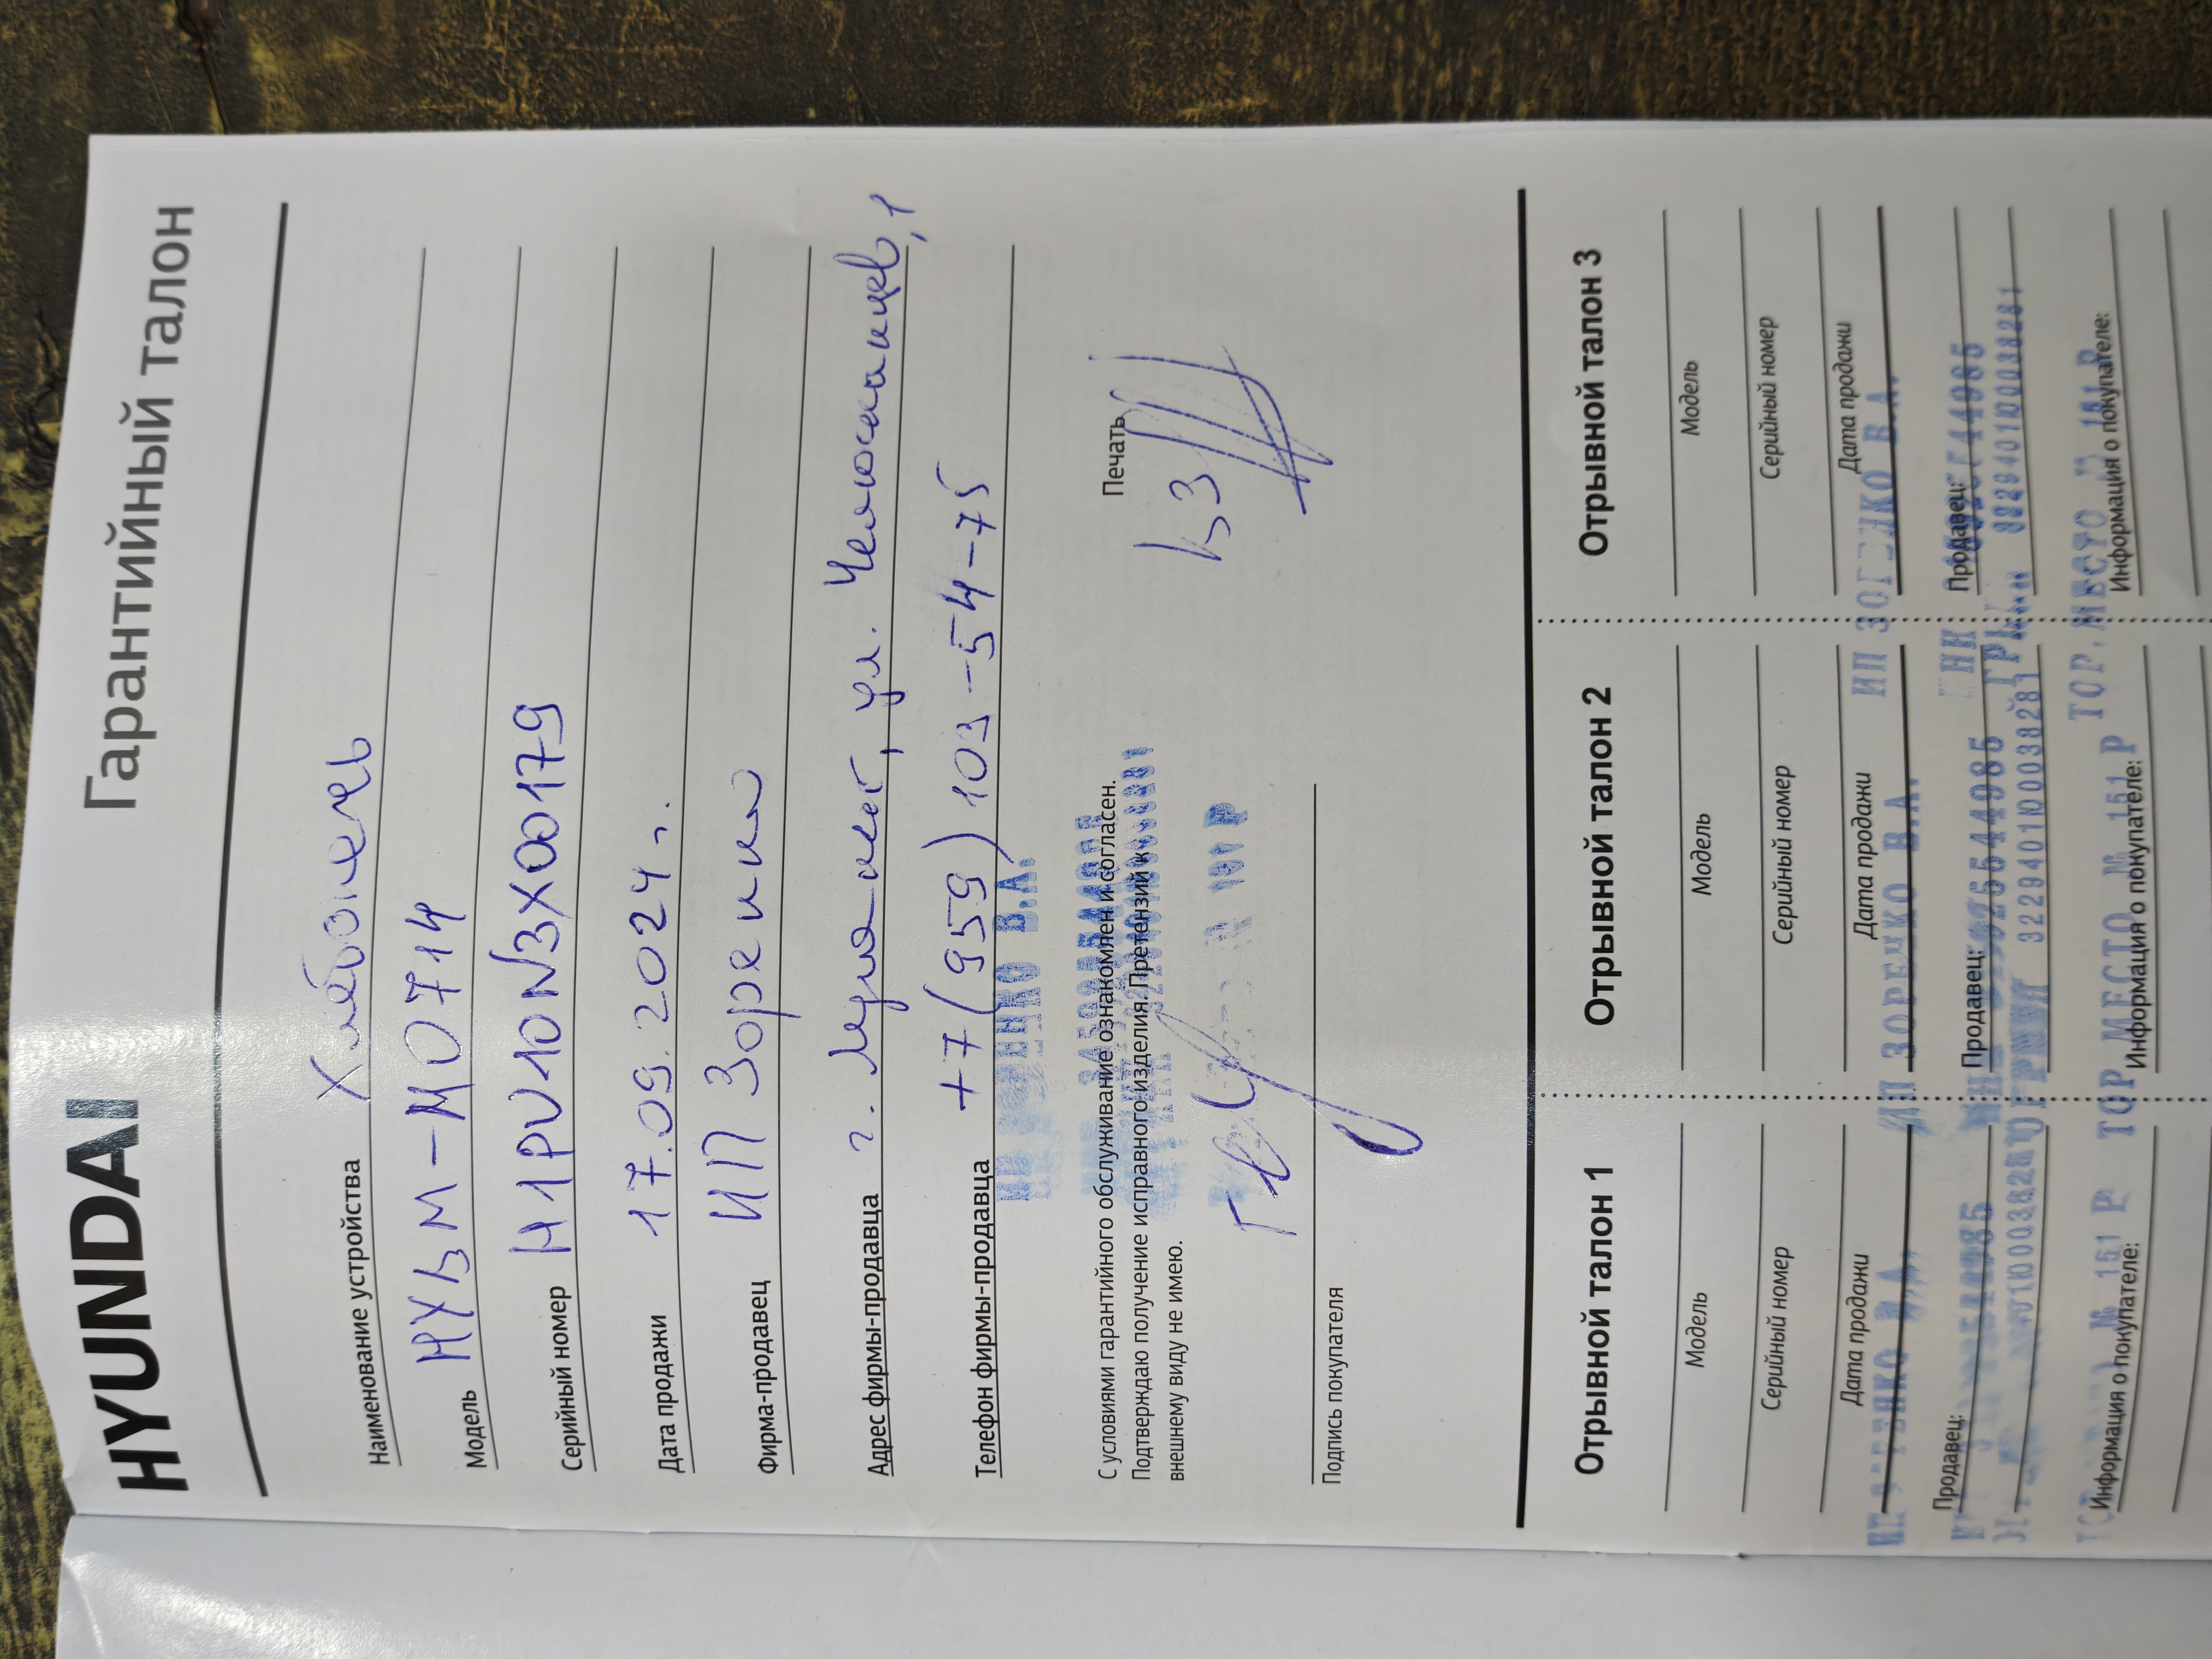 HYUNDAI
Гарантийный талон
Наименование устройства Хлебопечь
Модель HYBM-M0714
Серийный номер H1PU10N3X00179
Дата продажи 17.09.2024 г.
Фирма-продавец ИП Зоренко
Адрес фирмы-продавца г. Луганск, ул. Челюскинцев, 1
Телефон фирмы-продавца +7(959)103-54-75
С условиями гарантийного обслуживание ознакомлен и согласен.
Подтверждаю получение исправного изделия. Претензий к
внешнему виду не имею.
Печать
Б3
Подпись покупателя
Отрывной талон 1
Модель
Серийный номер
Дата продажи
Продавец:
Информация о покупателе:
Отрывной талон 2
Модель
Серийный номер
Дата продажи
ИП ЗОРЕНКО В.А.
Продавец:
322940100038281
ТОР.МЕСТО № 151 Р
Информация о покупателе:
Отрывной талон 3
Модель
Серийный номер
Дата продажи
ИП ЗОРЕНКО В.А.
Продавец:
322940100038281
ТОР.МЕСТО № 151 Р
Информация о покупателе: